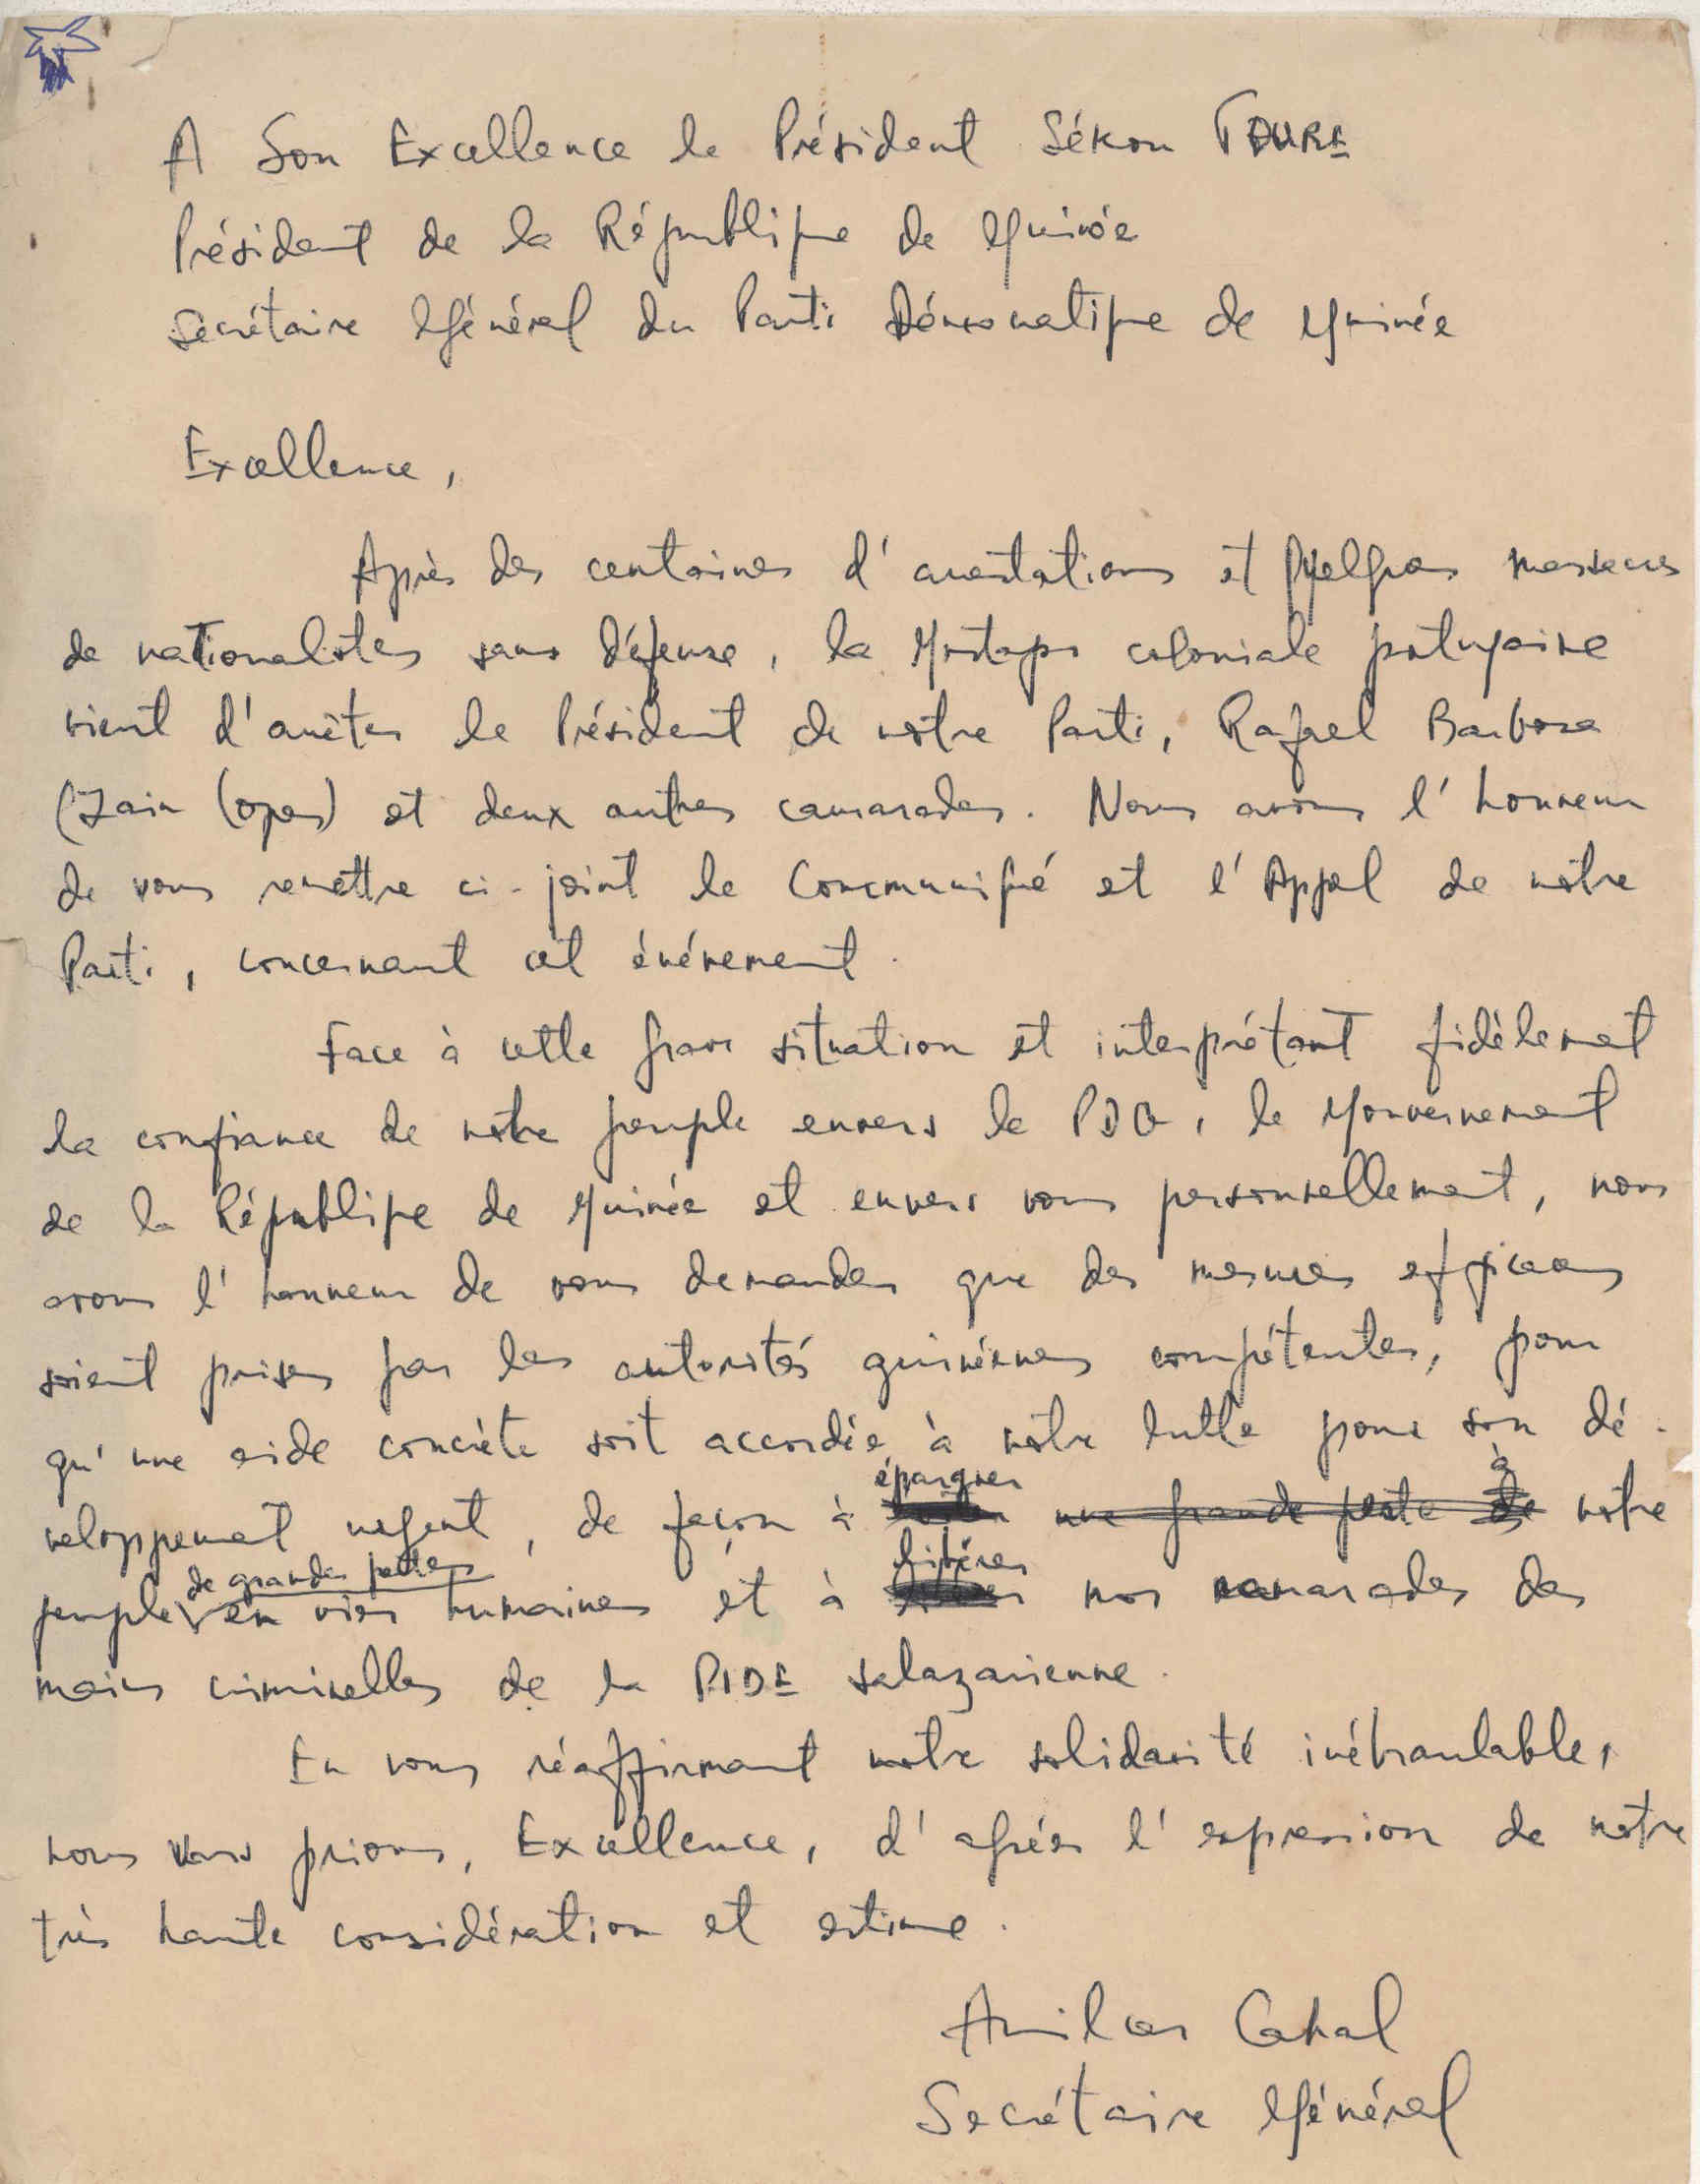 A Son Excellence le Président Sékou TOURE
Président de la République de Guinée
Secrétaire Général du Parti Démocratique de Guinée
Excellence,
Après des centaines d'arrestations et quelques massacres
de nationalistes sans défense, la Gestapo coloniale portugaise
vient d'arrêter le Président de notre Parti, Rafael Barbosa
(Zain Lopes) et deux autres camarades. Nous avons l'honneur
de vous remettre ci-joint le Communiqué et l'Appel de notre
Parti, concernant cet événement.
Face à cette grave situation et interprétant fidèlement
la confiance de notre peuple envers le PDG, le Gouvernement
de la République de Guinée et envers vous personnellement, nous
avons l'honneur de vous demander que des mesures efficaces
soient prises par les autorités guinéennes compétentes, pour
qu'une aide concrète soit accordée à notre lutte pour son dé-
veloppement urgent, de façon à épargner une grande perte de à notre
peuple de grandes pertes en vies humaines et à libérer nos camarades des
mains criminelles de la PIDE salazarienne.
En vous réaffirmant notre solidarité inébranlable,
nous vous prions, Excellence, d'agréer l'expression de notre
très haute considération et estime.
Amilcar Cabral
Secrétaire Général